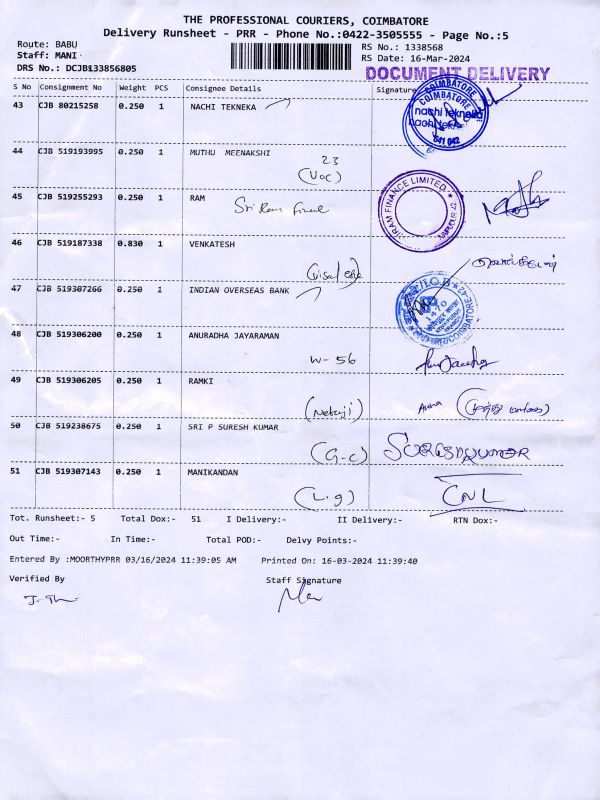 THE PROFESSIONAL COURIERS, COIMBATORE
Delivery Runsheet - PRR - Phone No.:0422-3505555 - Page No.:5
Route: BABU RS No.: 1338568
Staff: MANI RS Date: 16-Mar-2024
DRS No.: DCJB133856805
DOCUMENT DELIVERY
S No Consignment No Weight PCS Consignee Details Signature
43 CJB 80215258 0.250 1 NACHI TEKNEKA
COIMBATORE
nachi tekneka
641 042
44 CJB 519193995 0.250 1 MUTHU MEENAKSHI
23
(VOC)
45 CJB 519255293 0.250 1 RAM
Sri Ram
RAM FINANCE LIMITED
46 CJB 519187338 0.830 1 VENKATESH
47 CJB 519307266 0.250 1 INDIAN OVERSEAS BANK
I.O.B
1470
COIMBATORE-42
48 CJB 519306200 0.250 1 ANURADHA JAYARAMAN
W-56
49 CJB 519306205 0.250 1 RAMKI
(Netaji)
50 CJB 519238675 0.250 1 SRI P SURESH KUMAR
(G-C) SURESHKUMAR
51 CJB 519307143 0.250 1 MANIKANDAN
(L.g) CNL
Tot. Runsheet:- 5 Total Dox:- 51 I Delivery:- II Delivery:- RTN Dox:-
Out Time:- In Time:- Total POD:- Delvy Points:-
Entered By :MOORTHYPRR 03/16/2024 11:39:05 AM Printed On: 16-03-2024 11:39:40
Verified By Staff Signature